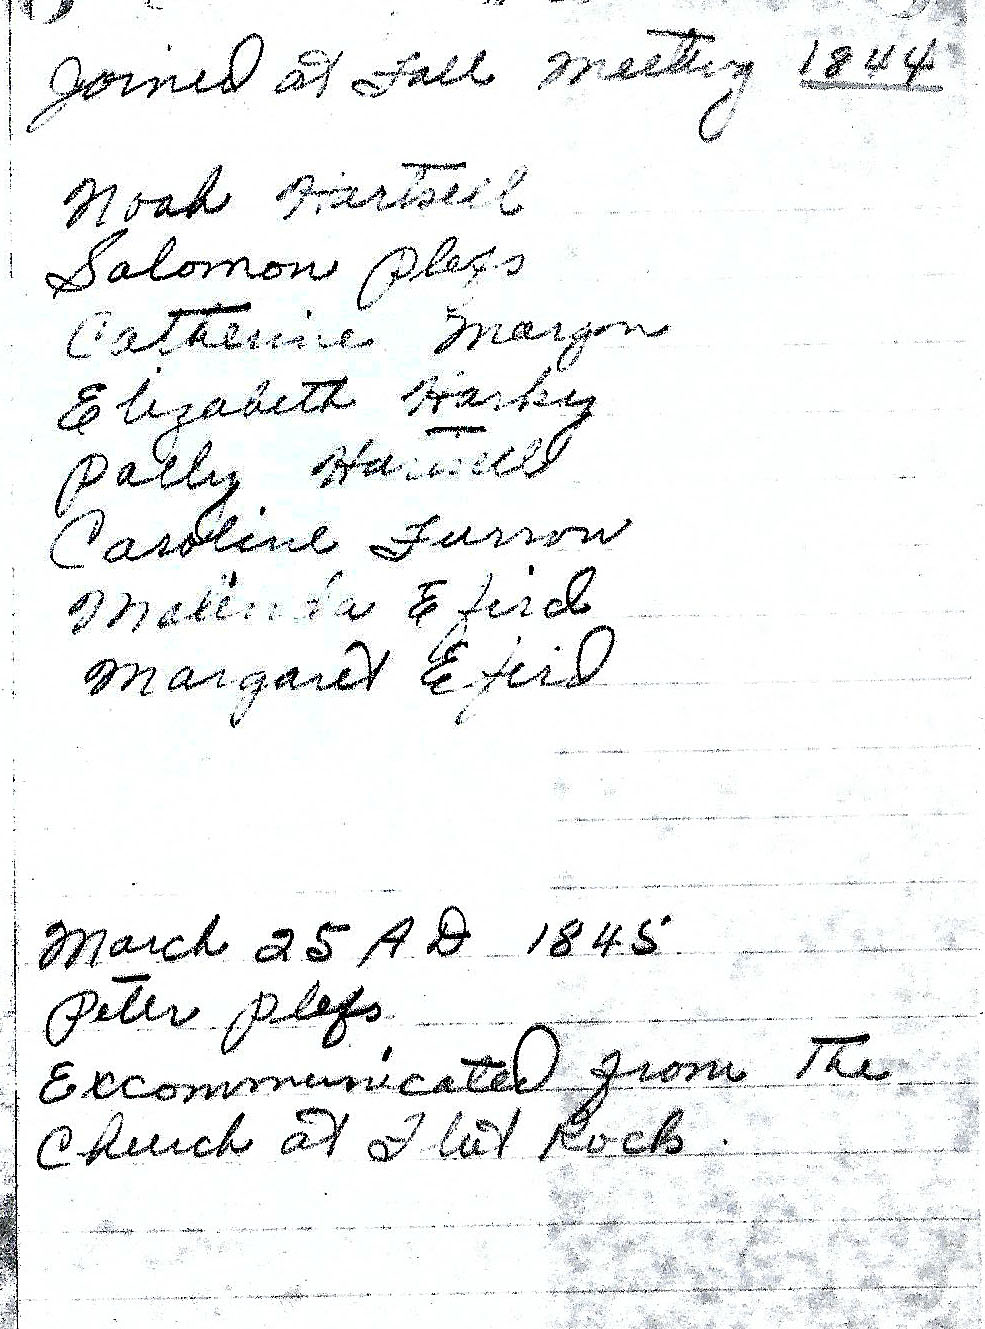 Joined at Fall Meeting 1844
Noah Hartsell
Salomon Plefs
Catherine Margon
Elizabeth Harky
Polly Hartsell
Caroline Furron
Malinda Efird
Margaret Efird
March 25 A D 1845
Peter Plefs
Excommunicated from The
Church at Flat Rock.